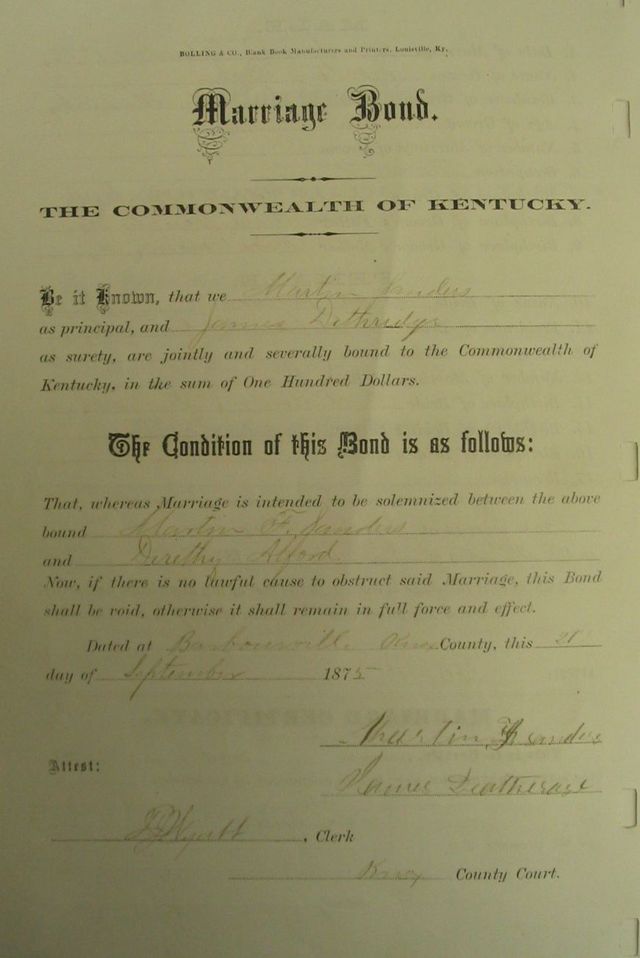 BOLLING & CO., Blank Book Manufacturers and Printers, Louisville, Ky.
Marriage Bond.
THE COMMONWEALTH OF KENTUCKY.
Be it Known, that we Martin Sanders
as principal, and James Dethridge
as surety, are jointly and severally bound to the Commonwealth of
Kentucky, in the sum of One Hundred Dollars.
The Condition of this Bond is as follows:
That, whereas Marriage is intended to be solemnized between the above
bound Martin F. Sanders
and Alford
Now, if there is no lawful cause to obstruct said Marriage, this Bond
shall be void, otherwise it shall remain in full force and effect.
Dated at Barbourville Knox County, this
day of September 1875
Martin F Sanders
Attest:
James Deatherage
Wyatt, Clerk
Knox County Court.